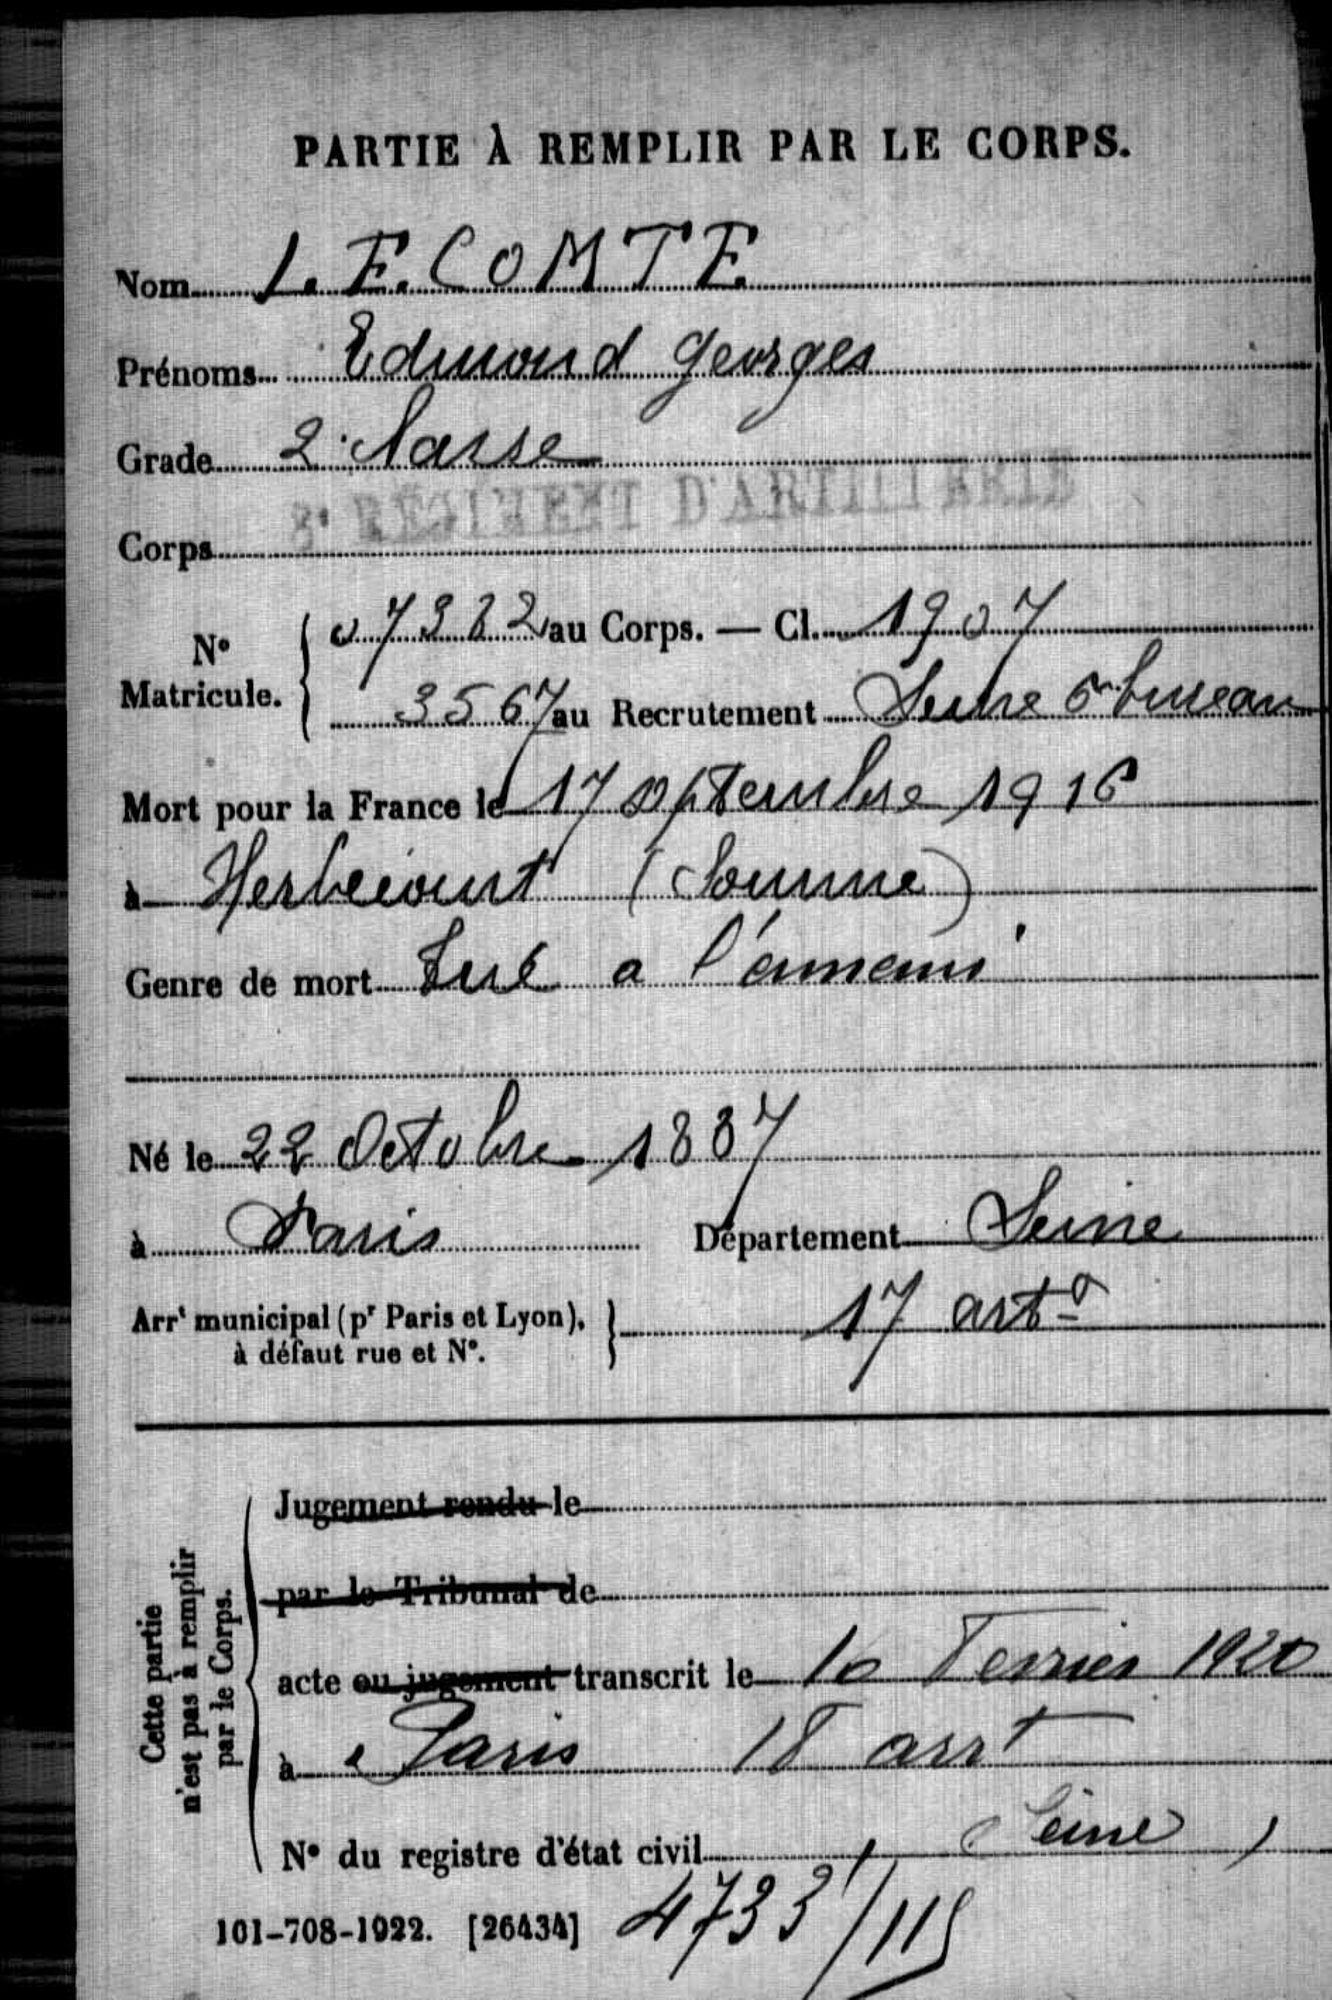 PARTIE À REMPLIR PAR LE CORPS.
Nom LECOMTE
Prénoms Edmond Georges
Grade 2e classe
Corps 8e RÉGIMENT D'ARTILLERIE
No Matricule. 07382 au Corps. — Cl. 1907
3567 au Recrutement Seine 5e bureau
Mort pour la France le 17 septembre 1916
à Herbécourt (Somme)
Genre de mort Tué a l'ennemi
Né le 22 Octobre 1887
à Paris Département Seine
Arrt municipal (pr Paris et Lyon), à défaut rue et No. 17 arrt
Cette partie n'est pas à remplir par le Corps.
Jugement rendu le
par le Tribunal de
acte ou jugement transcrit le 10 Fevrier 1920
à Paris 18 arrt
(Seine)
No du registre d'état civil
101-708-1922. [26434] 4733/115